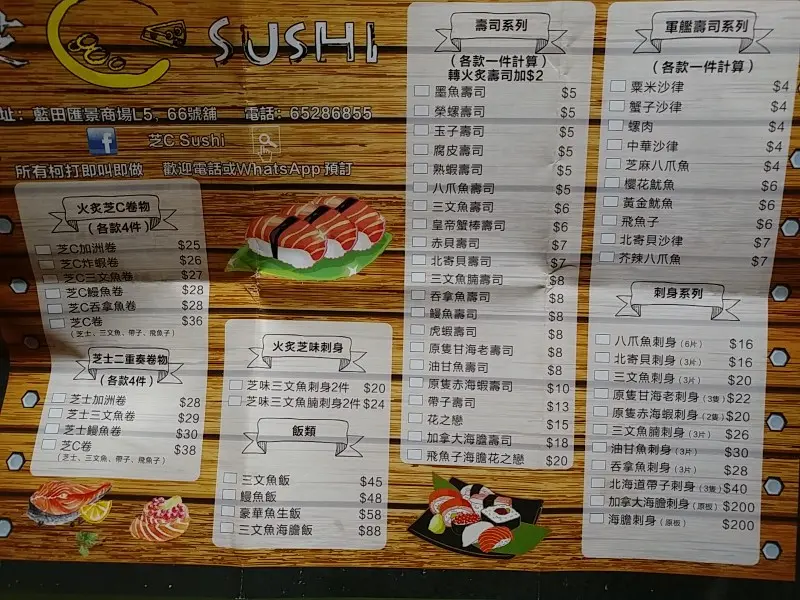 C SUSHI
址：藍田匯景商場L5，66號舖 電話：65286855
芝C Sushi
所有柯打即叫即做 歡迎電話或WhatsApp預訂
火炙芝C卷物
（各款4件）
芝C加洲卷 $25
芝C炸蝦卷 $26
芝C三文魚卷 $27
芝C鰻魚卷 $28
芝C吞拿魚卷 $28
芝C卷 $36
（芝士、三文魚、帶子、飛魚子）
芝士二重奏卷物
（各款4件）
芝士加洲卷 $28
芝士三文魚卷 $29
芝士鰻魚卷 $30
芝C卷 $38
（芝士、三文魚、帶子、飛魚子）
火炙芝味刺身
芝味三文魚刺身2件 $20
芝味三文魚腩刺身2件 $24
飯類
三文魚飯 $45
鰻魚飯 $48
豪華魚生飯 $58
三文魚海膽飯 $88
壽司系列
（各款一件計算）
轉火炙壽司加$2
墨魚壽司 $5
榮螺壽司 $5
玉子壽司 $5
腐皮壽司 $5
熟蝦壽司 $5
八爪魚壽司 $5
三文魚壽司 $6
皇帝蟹棒壽司 $6
赤貝壽司 $7
北寄貝壽司 $7
三文魚腩壽司 $8
吞拿魚壽司 $8
鰻魚壽司 $8
虎蝦壽司 $8
原隻甘海老壽司 $8
油甘魚壽司 $8
原隻赤海蝦壽司 $10
帶子壽司 $13
花之戀 $15
加拿大海膽壽司 $18
飛魚子海膽花之戀 $20
軍艦壽司系列
（各款一件計算）
粟米沙律 $4
蟹子沙律 $4
螺肉 $4
中華沙律 $4
芝麻八爪魚 $4
櫻花魷魚 $6
黃金魷魚 $6
飛魚子 $6
北寄貝沙律 $7
芥辣八爪魚 $7
刺身系列
八爪魚刺身（6片） $16
北寄貝刺身（3片） $16
三文魚刺身（3片） $20
原隻甘海老刺身（3隻） $22
原隻赤海蝦刺身（2隻） $20
三文魚腩刺身（3片） $26
油甘魚刺身（3片） $30
吞拿魚刺身（3片） $28
北海道帶子刺身（3隻） $40
加拿大海膽刺身（原板） $200
海膽刺身（原板） $200